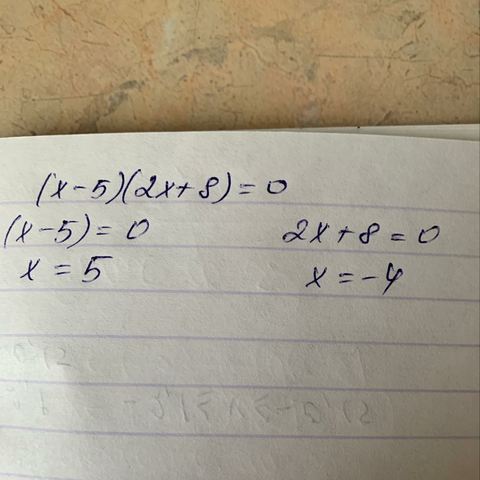 (x-5)(2x+8)=0
(x-5)=0 2x+8=0
x=5 x=-4